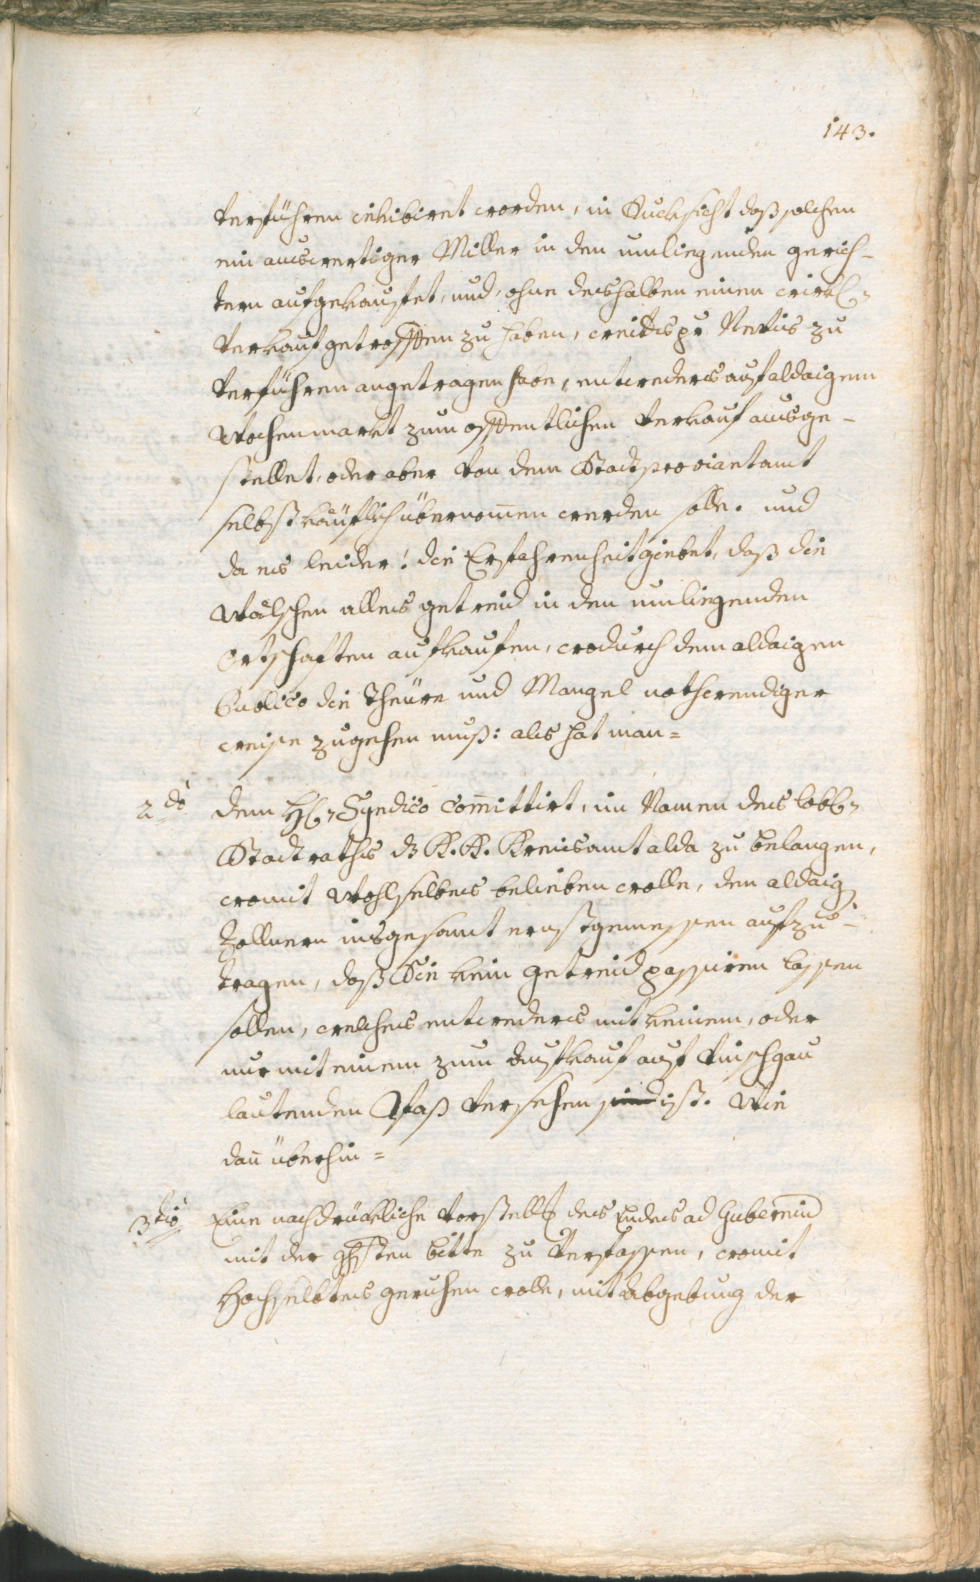 143.
verführen inhibiret worden, in Rucksicht daß solchen
ein auswertiger Miller in den umliegenden gerich-
tern aufgekaufet, und, ohne deshalben einen
verkauf getroffen zu haben, zu
verführen angetragen habe, entweders auf aldaigem
Wochenmarkt zum offentlichen verkauf ausge-
stellet, oder aber von dem Stadtproviantamt
selbst käuflich übernom̅en werden solle. und
da es leider! die Erfahrenheit giebet, daß die
Wälschen alles getreid in den umliegenden
Ortschaften aufkaufen, wodurch dem aldaigen
Publico die Theure und Mangel nothwendiger
weise zugehen muß: als hat man=
2do dem H: Syndico Com̅ittirt, im Namen des löbl:
Stadtraths K. K. Kreisamt alda zu belangen,
womit Wohlselbes belieben wolle, den aldaig:
Zollnern insgesamt ernstgemessen aufzu-
tragen, daß Sie kein getreid passiren lassen
sollen, welches entweders mit keinem, oder
nur mit einem zum aufkauf auf Vinschgau
lautenden Paß versehen sind ist. Wie
dan̅ überhin=
3tio Eine nachdrückliche Vorstellg des Endes ad Gubernium
mit der bitte zu verfassen, womit
Hochselbtes geruhen wolle, mit Abgebung der